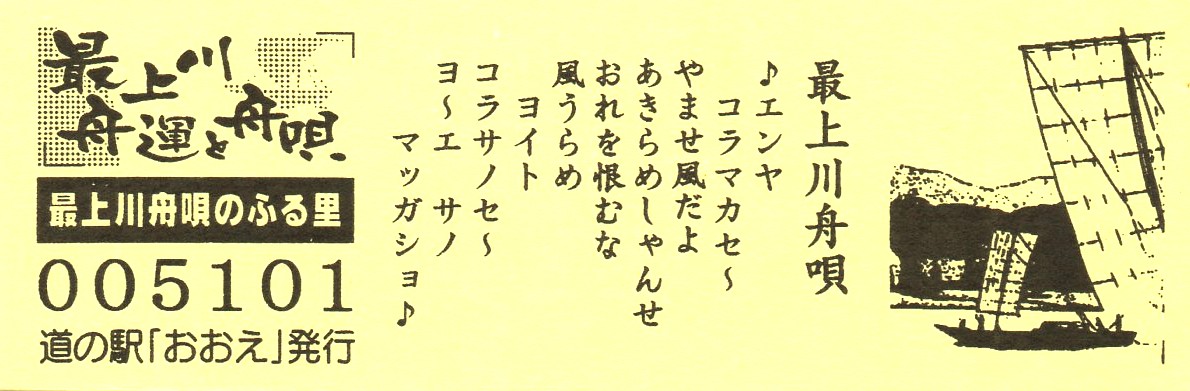 最上川
舟運と舟唄
最上川舟唄のふる里
005101
道の駅「おおえ」発行
最上川舟唄
♪エンヤ
コラマカセ～
やませ風だよ
あきらめしゃんせ
おれを恨むな
風うらめ
ヨイト
コラサノセ～
ヨ～エ サノ
マッガショ♪